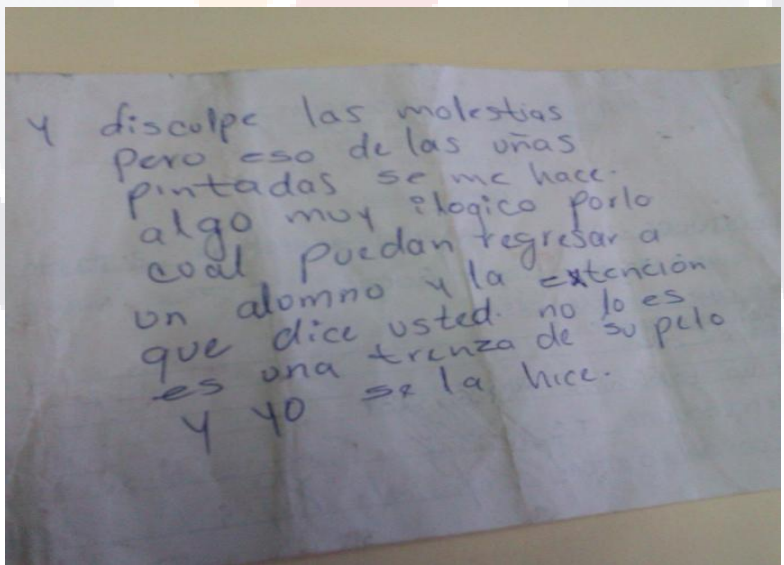 y disculpe las molestias
pero eso de las uñas
pintadas se me hace.
algo muy ilogico porlo
coal puedan regresar a
un alomno y la extención
que dice usted. no lo es
es una trenza de su pelo
y yo se la hice.